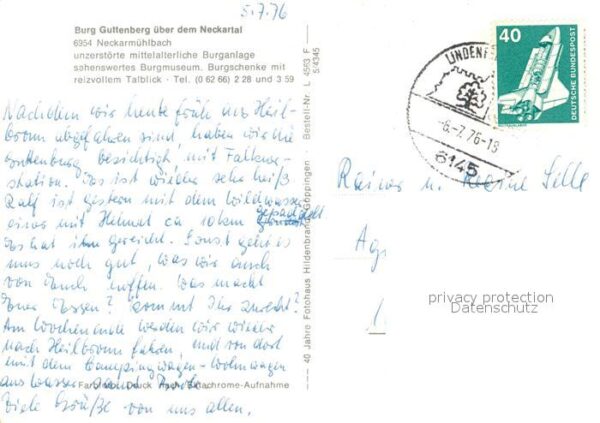 5.7.76
Burg Guttenberg über dem Neckartal
6954 Neckarmühlbach
unzerstörte mittelalterliche Burganlage
sehenswertes Burgmuseum, Burgschenke mit
reizvollem Talblick · Tel. (0 62 66) 2 28 und 3 59
Nachdem wir heute früh aus Heil-
bronn abgefahren sind, haben wir die
Guttenburg besichtigt, mit Falkner-
station. Es ist wieder sehr heiß
Ralf ist gestern mit dem Wildwasser
einer mit Helmut ca 10 km gepaddelt
Es hat ihm gereicht. Sonst geht es
uns noch gut, was wir auch
von Euch hoffen. Was macht
Euer Essen? kommt Ihr zurecht?
Am Wochenende werden wir wieder
nach Heilbronn fahren, und von dort
mit dem Campingwagen-Wohnwagen
ans Wasser
Viele Grüße von uns allen.
Farbfoto, Druck nach Ektachrome-Aufnahme
40 Jahre Fotohaus Hildenbrand, Göppingen · Bestell-Nr. L 4563 F
5/4345
40
DEUTSCHE BUNDESPOST
LINDENF
-6.-7.76-18
6145
Rainer u.
privacy protection
Datenschutz